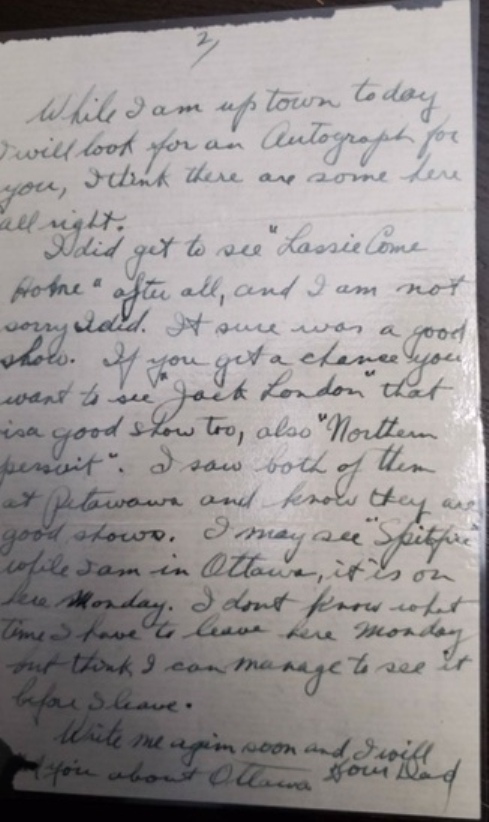 2/
While I am up town today
I will look for an Autograph for
you, I think there are some here
all right.
I did get to see "Lassie Come
Home" after all, and I am not
sorry I did. It sure was a good
show. If you get a chance you
want to see "Jack London" that
is a good show too, also "Northern
persuit". I saw both of them
at Petawawa and know they are
good shows. I may see "Spitfire"
while I am in Ottawa, it is on
here Monday. I dont know what
time I have to leave here Monday
but think I can manage to see it
before I leave.
Write me again soon and I will
you about Ottawa Your Dad